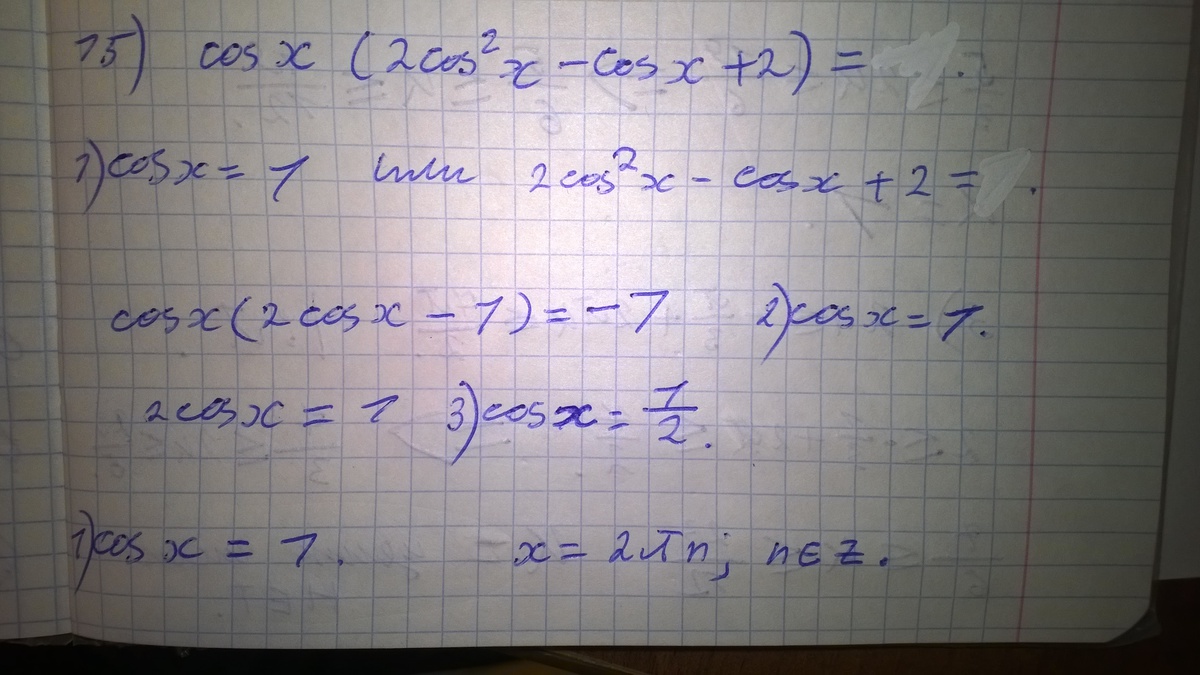 15) cos x (2cos²x - cosx + 2) =
1) cosx = 1 или 2cos²x - cosx + 2 = .
cosx(2cosx - 1) = -1 2) cosx = 1.
2cosx = 1 3) cosx = 1/2.
1) cos x = 1. x = 2πn; n∈Z.